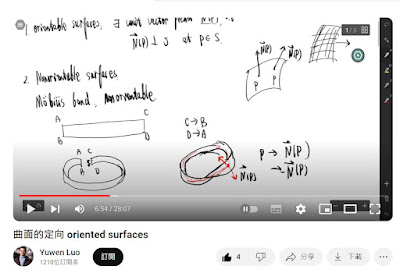 1/3
1 orientable surfaces. ∃ unit vector
N⃗(P) ⊥ S at p∈S.
N⃗(P)
N⃗(P)
P
P
2. Nonorientable surfaces.
Möbius band, nonorientable
A
C
B
D
C→B
D→A
A C
B D
N⃗(P)
P → N⃗(P)
→ -N⃗(P)
6:54 / 28:07
曲面的定向 oriented surfaces
Yuwen Luo
訂閱
4
分享
下載